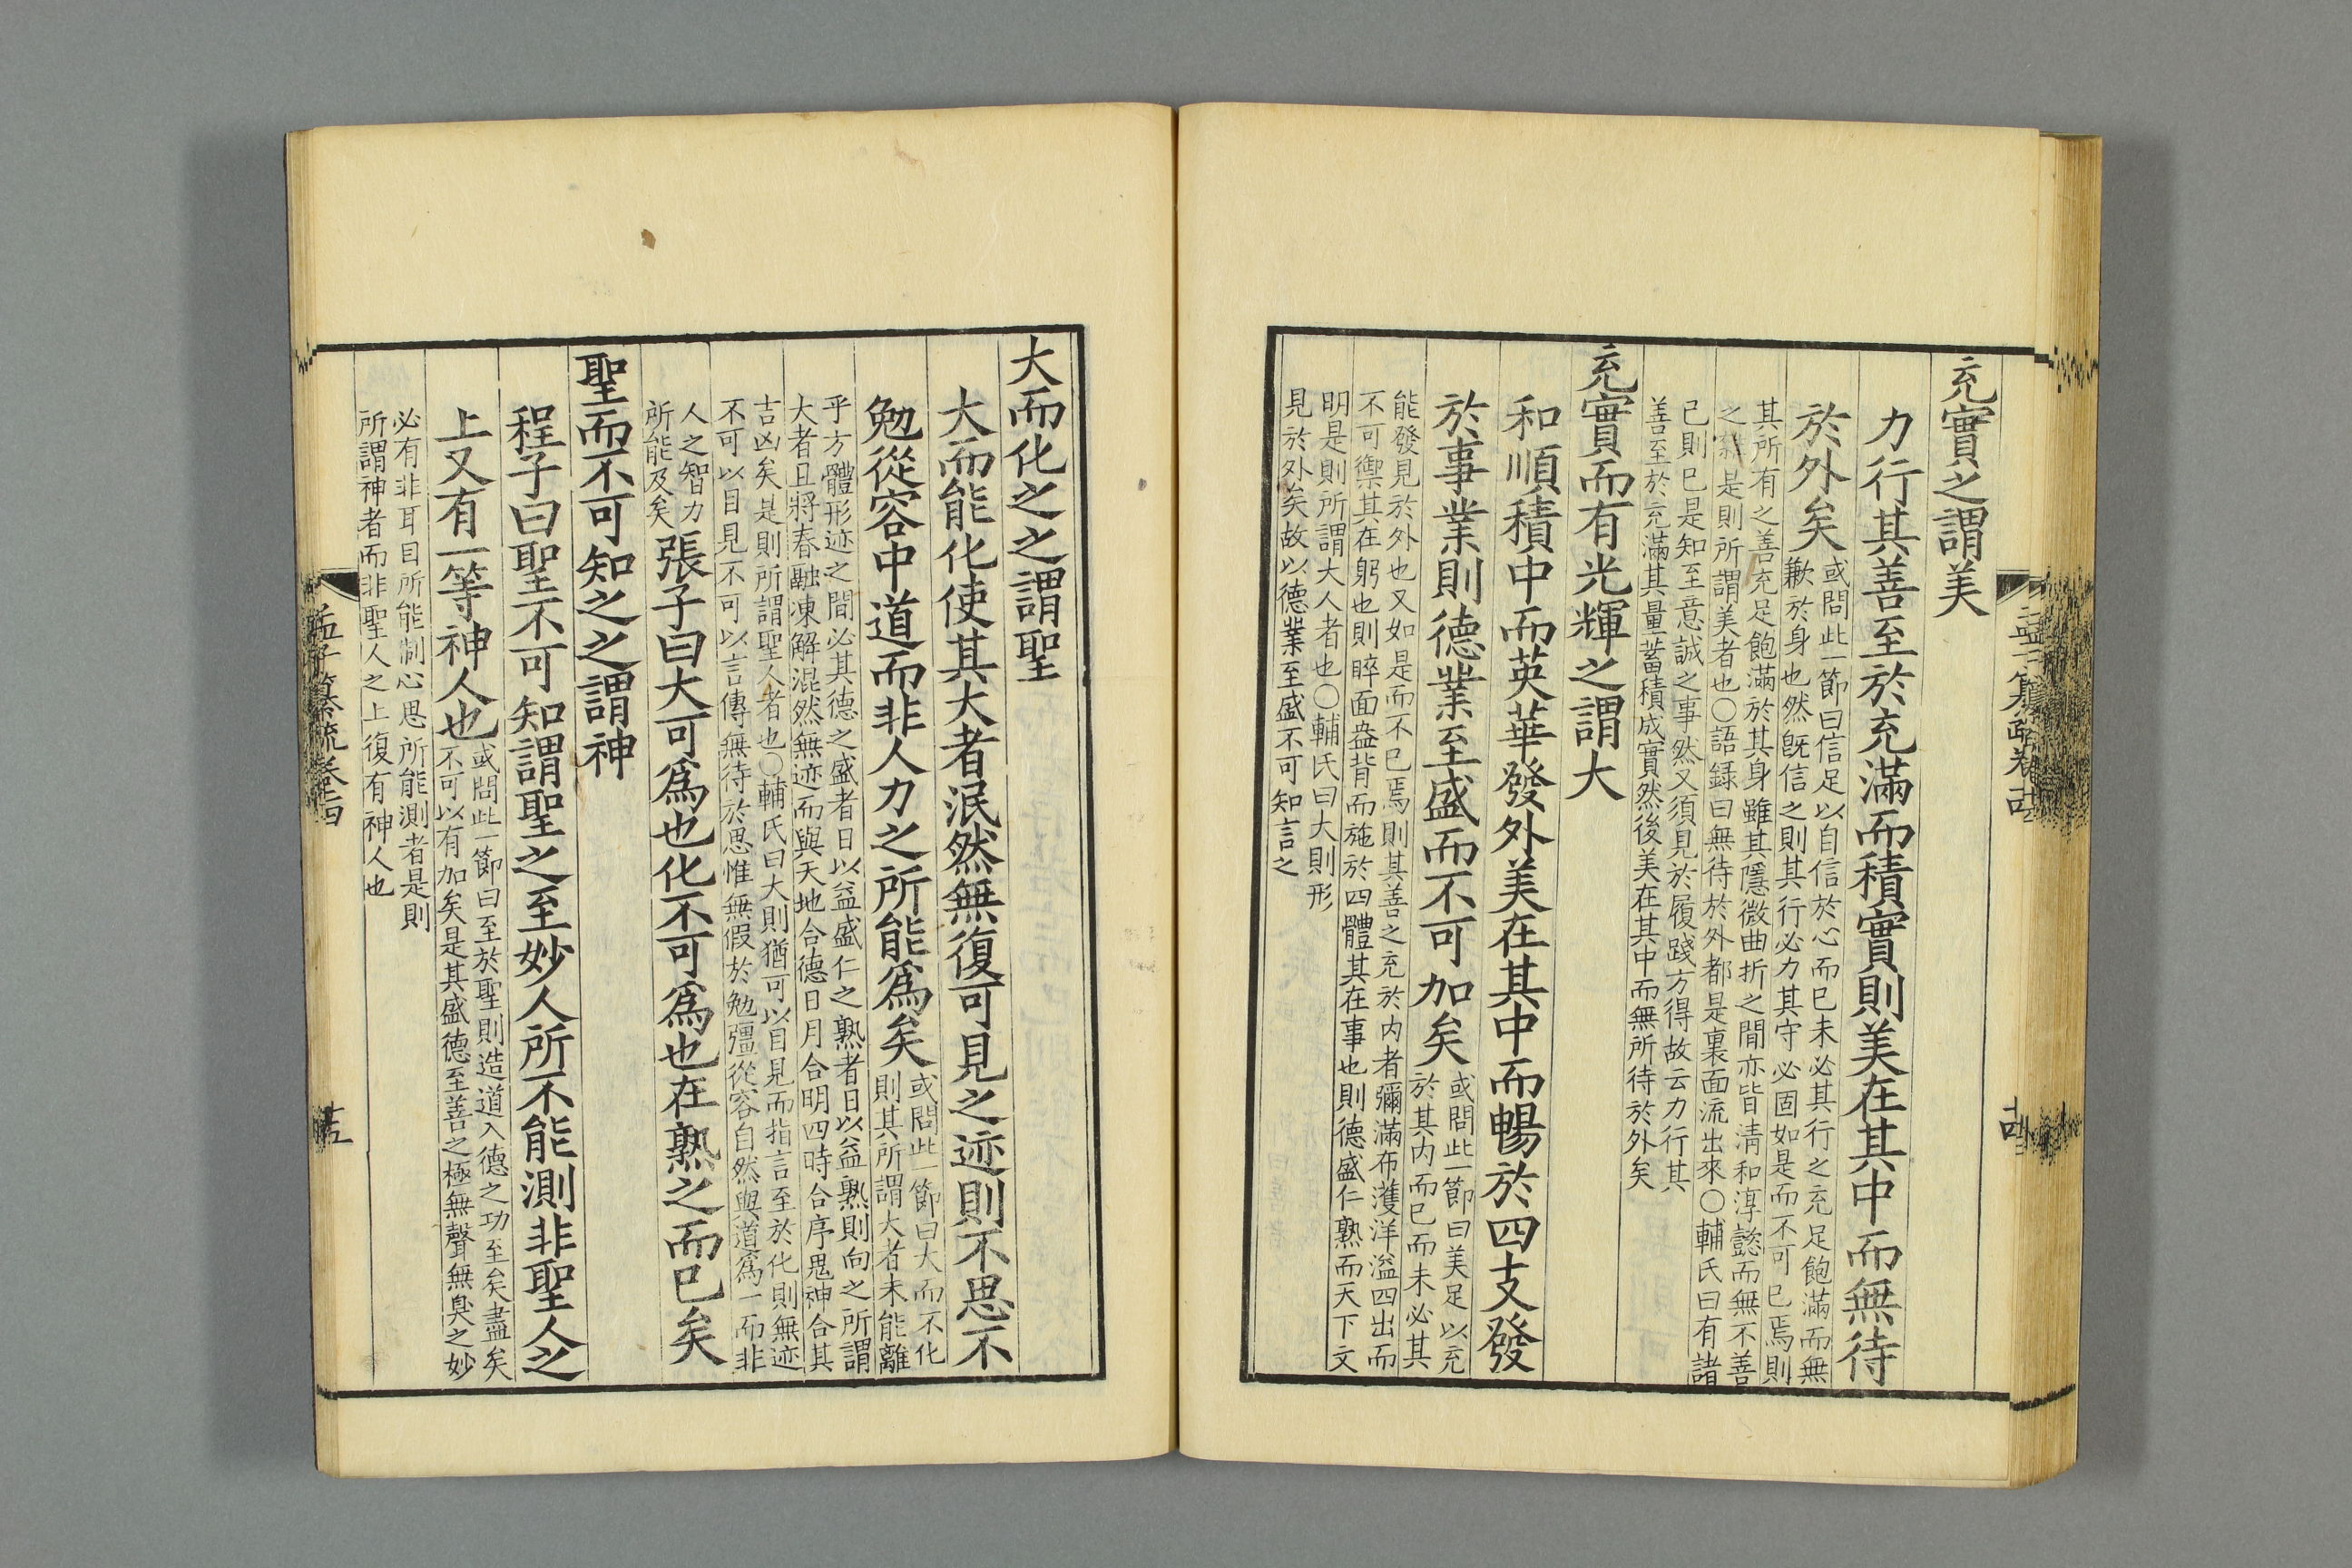 充實之謂美
力行其善至於充滿而積實則美在其中而無待
於外矣
或問此一節曰信足以自信於心而已未必其行之充足飽滿而無
歉於身也然旣信之則其行必力其守必固如是而不可已焉則
其所有之善充足飽滿於其身雖其隱微曲折之間亦皆淸和淳懿而無不善
之雜是則所謂美者也○語録曰無待於外都是裏面流出來○輔氏曰有諸
己則已是知至意誠之事然又須見於履踐方得故云力行其
善至於充滿其量蓄積成實然後美在其中而無所待於外矣
充實而有光輝之謂大
和順積中而英華發外美在其中而暢於四支發
於事業則德業至盛而不可加矣
或問此一節曰美足以充
於其内而已而未必其
能發見於外也又如是而不已焉則其善之充於内者彌滿布濩洋溢四出而
不可禦其在躬也則睟面盎背而施於四體其在事也則德盛仁熟而天下文
明是則所謂大人者也○輔氏曰大則形
見於外矣故以德業至盛不可知言之
孟子纂疏卷十四
十四
大而化之之謂聖
大而能化使其大者泯然無復可見之迹則不思不
勉從容中道而非人力之所能爲矣
或問此一節曰大而不化
則其所謂大者未能離
乎方體形迹之間必其德之盛者日以益盛仁之熟者日以益熟則向之所謂
大者且將春融凍解混然無迹而與天地合德日月合明四時合序鬼神合其
吉凶矣是則所謂聖人者也○輔氏曰大則猶可以目見而指言至於化則無迹
不可以目見不可以言傳無待於思惟無假於勉彊從容自然與道爲一而非
人之智力
所能及矣
張子曰大可爲也化不可爲也在熟之而已矣
聖而不可知之之謂神
程子曰聖不可知謂聖之至妙人所不能測非聖人之
上又有一等神人也
或問此一節曰至於聖則造道入德之功至矣盡矣
不可以有加矣是其盛德至善之極無聲無臭之妙
必有非耳目所能制心思所能測者是則
所謂神者而非聖人之上復有神人也
孟子纂疏卷十四
十五